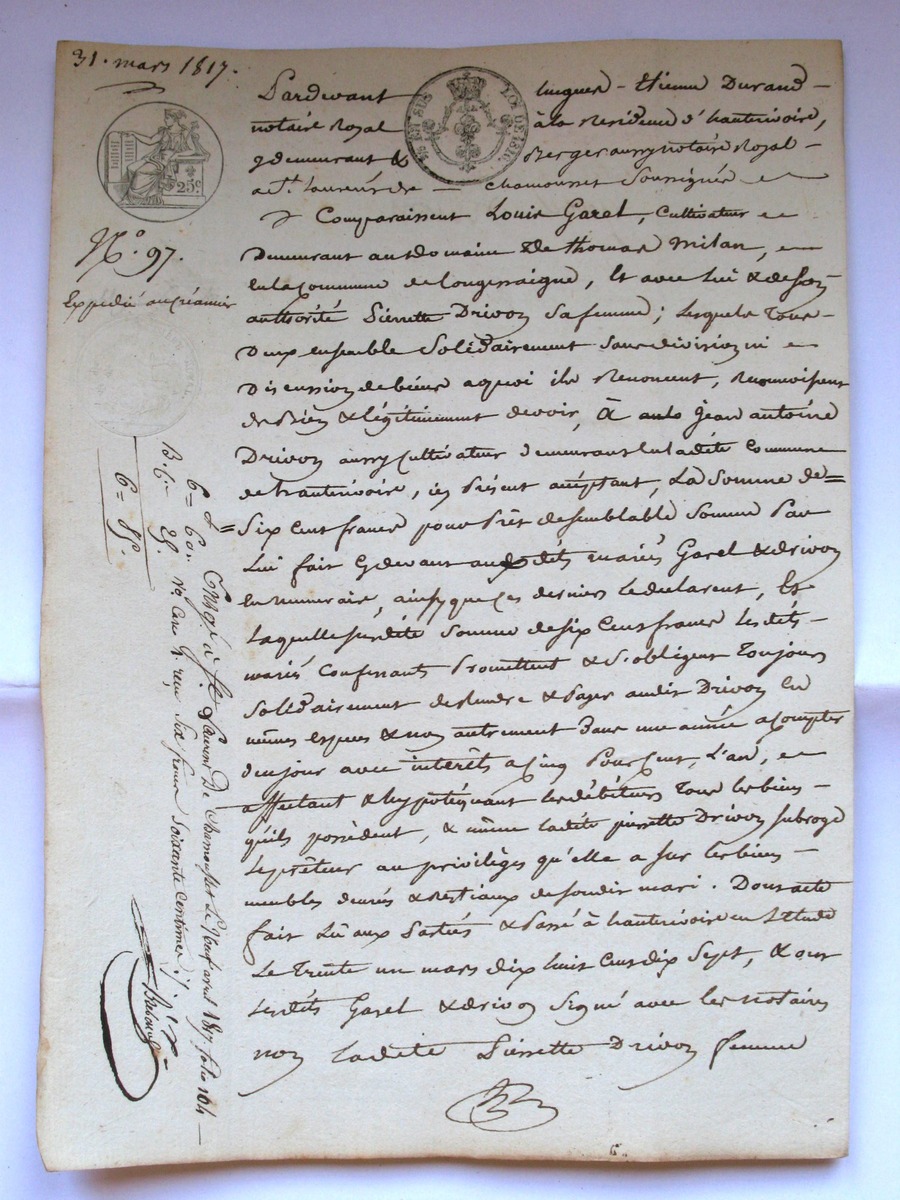 31. mars 1817.
25c.
LOI DE 1816.
N.° 97.
Expedié au Créancier
Pardevant hugues - Etienne Durand -
notaire Royal à la Residence d'hauterivoire,
y demeurant & Berger aussy notaire Royal -
a St. Laurent de - Chamousset Soussignés
Comparaissent Louis Garel, Cultivateur
Demeurant au domaine De thomas Milan,
en la Commune de Longessaigne, Et avec Lui & de son
authorité Pierrette Drivon Sa femme; Lesquels Tous -
Deux ensemble Solidairement Sans division ni
Discussion de biens a quoi ils Renoncent, Reconnoissent
de Bien & légitimement devoir, à Jean antoine
Drivon aussy Cultivateur demeurant en ladite Commune
de hauterivoire, icy Présent acceptant, La Somme de =
= Six Cent francs pour Prêt de semblable Somme Par
Lui fait Cy devant auxdits mariés Garel & drivon
En numeraire, ainsy que Ces derniers le declarent, Et
Laquelle susdite Somme de six Cent francs Lesdits -
mariés Confessants Promettent & S'obligent Toujours
Solidairement de Rendre & Payer audit Drivon En
mêmes especes & non autrement Dans une année a Compter
de ce jour avec intérêts a Cinq Pour Cent, L'an,
affectant & hypotéquant les débiteurs Tous les biens -
qu'ils possèdent, & même ladite pierrette Drivon Subroge
Le prêteur au privilèges qu'elle a sur les biens -
meubles denrés & Bestiaux de son dit mari. Dont acte
fait Lû aux Parties & Passé à hauterivoire en L'Etude
Le Trente un mars dix huit Cent dix Sept, & ont
Lesdits Garel & drivon Signé avec les notaires
non Ladite Pierrette Drivon femme
6 = 60.
85.
6 = 85.
Enregé à St Laurent De Chamousset Le Neuf avril 1817. folio 104
reçu Six francs Soixante Centimes